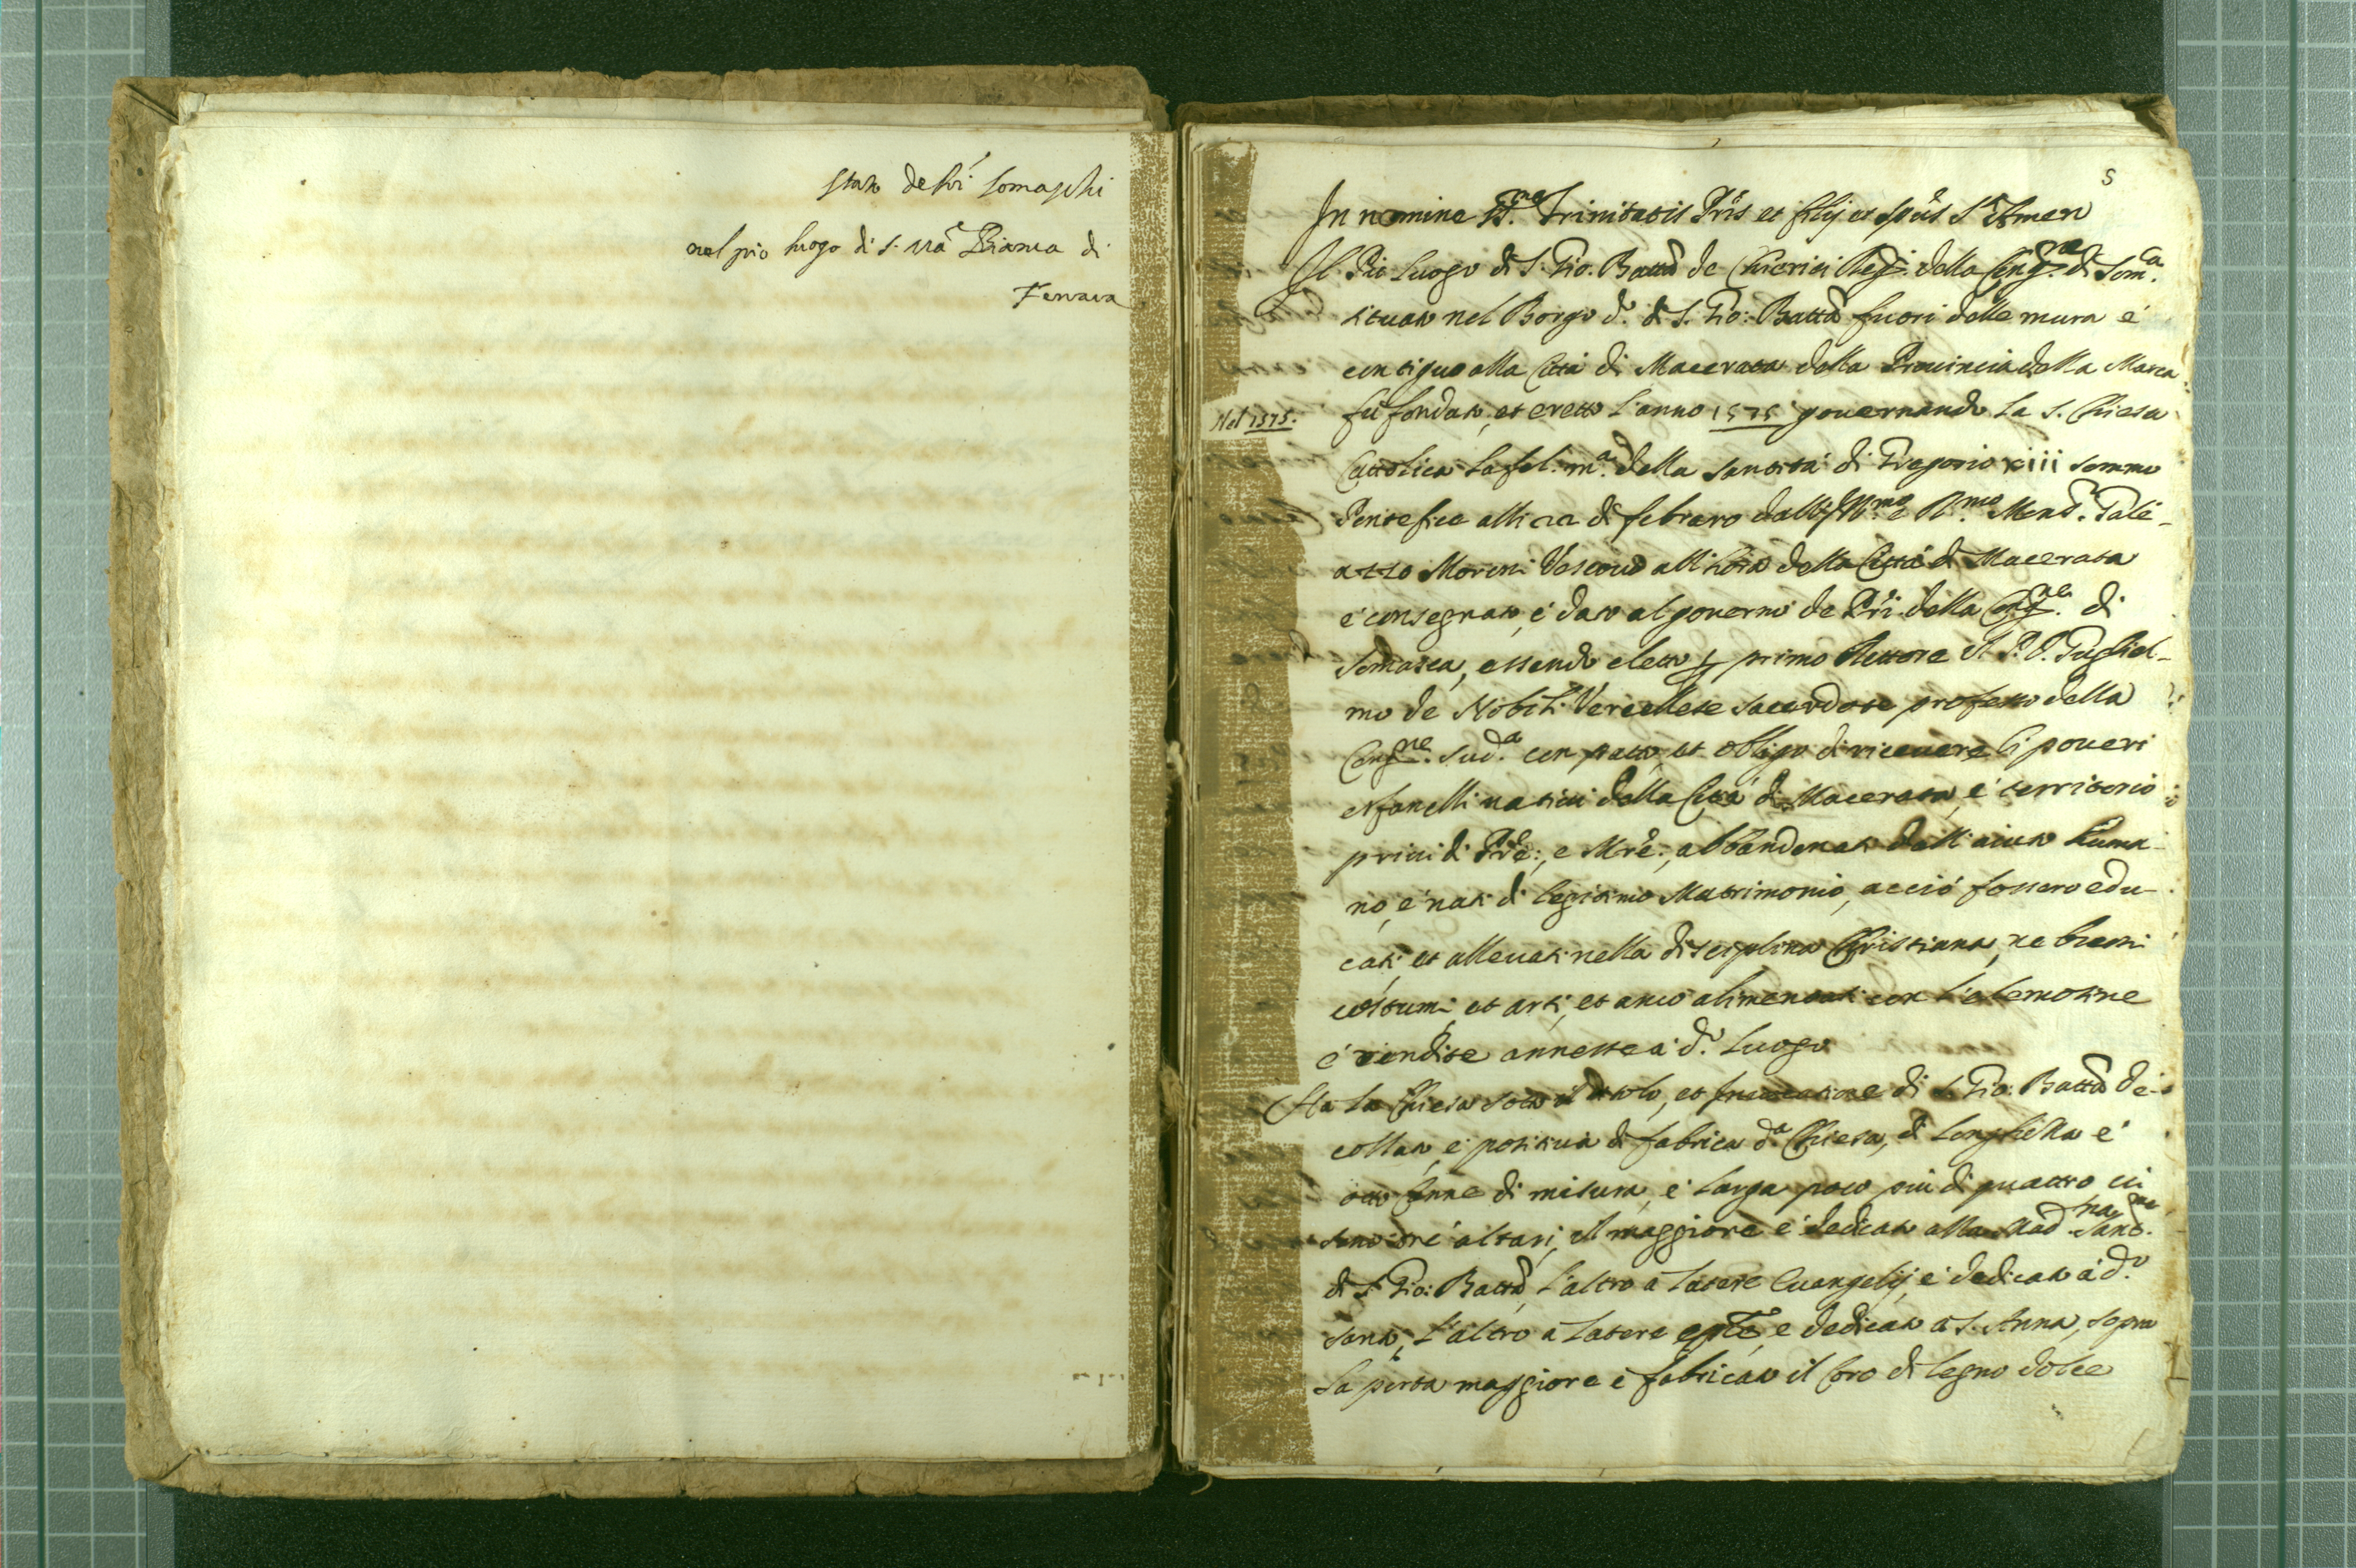 Stato de Pri Somaschi
nel pio luogo di S. Ma Bianca di
Ferrara
5
In nomine SS.me Trinitatis Pris et filij et Spus S.ti Amen
Il Pio Luogo di S. Gio. Batta de Chierici Reg.i della Cong.ne di Som.a
situato nel Borgo d.o di S. Gio: Batta fuori delle mura e
contiguo alla Città di Macerata della Prouincia della Marca
Nel 1575.
fù fondato, et eretto l'anno 1575 gouernando la S. Chiesa
Cattolica la fel. m.a della Santità di Gregorio xiii sommo
Pontefice alli 22 di febraro dall'Ill.mo e R.mo Mons.r Gale-
azzo Moroni Vescouo all'hora della Città di Macerata
e consegnato, e dato al gouerno de Pri della Cong.ne di
Somasca, essendo eletto p primo Rettore il P. D. Gugliel-
mo de Nobili Vercellese sacerdote professo della
Cong.ne sud.a con patto, et obligo di riceuere li poueri
orfanelli natiui della Città di Macerata, e territorio
priui di Pre:, e Mre:, abbandonati dell'aiuto huma-
no, e nati di legitimo Matrimonio, acciò fossero edu-
cati, et alleuati nella disciplina Christiana, ne buoni
costumi, et arti, et anco alimentati con l'elemosine
e rendite annesse à d.o Luogo
Ha la Chiesa sotto il titolo, et Inuocatione di S. Gio: Batta de-
collato, e positiua di fabrica d.a Chiesa, di longhezza e
otto Canne di misura, e larga poco più di quattro ui
sono tre altari, il maggiore è dedicato alla Mad.na
di S. Gio: Batta, l'altro a latere Euangelij, è dedicato à d.o
Santo, l'altro a latere eple, e dedicato a S. Anna, sopra
la porta maggiore è fabricato il Coro di legno dolce